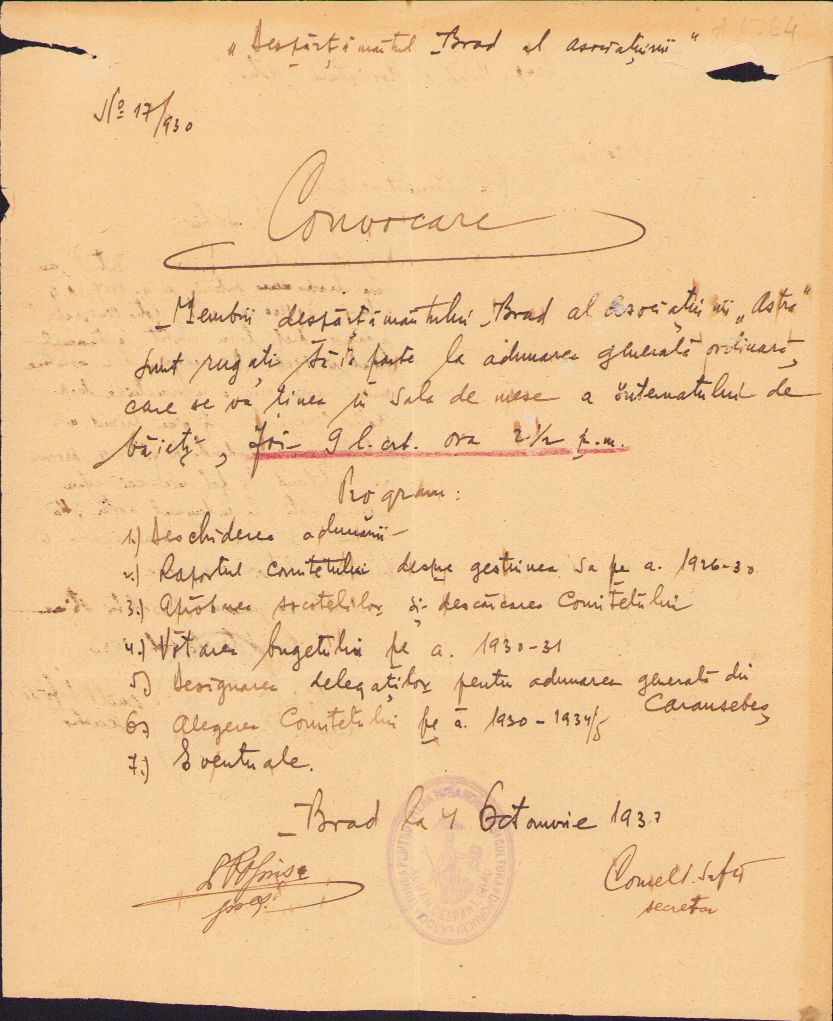 "Despărțământul Brad al Asociațiunii"
No 17/930
Convocare
Membrii despărțământului Brad al Asociațiunii „Astra"
sunt rugați să ia parte la adunarea generală ordinară,
care se va ținea în sala de mese a internatului de
băieți, Joi 9 l. crt. ora 2 1/2 p.m.
Program:
1.) Deschiderea adunării
2.) Raportul comitetului despre gestiunea sa pe a. 1926-30
3.) Aprobarea socotelilor și descărcarea Comitetului
4.) Votarea bugetului pe a. 1930-31
5) Designarea delegaților pentru adunarea generală din
Caransebeș
6) Alegerea Comitetului pe a. 1930-1934/5
7.) Eventuale.
Brad la 4 Octomvrie
secretar